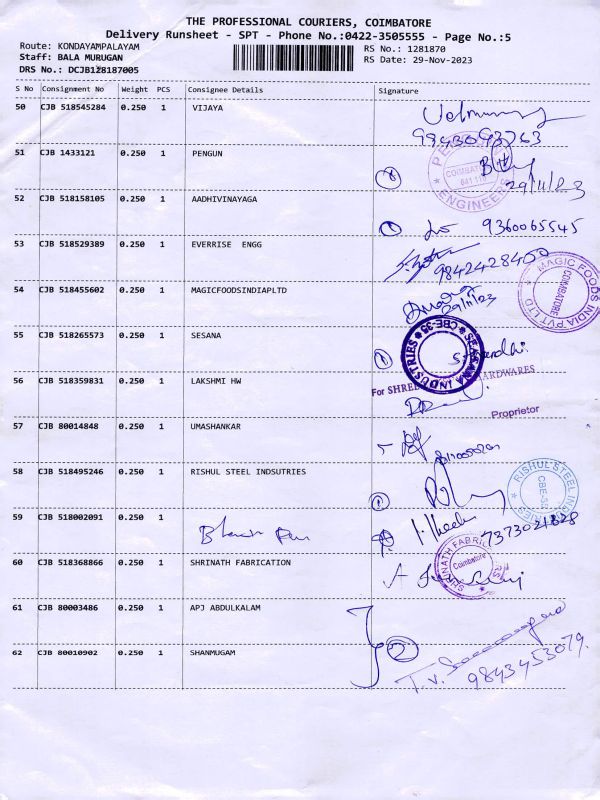 THE PROFESSIONAL COURIERS, COIMBATORE
Delivery Runsheet - SPT - Phone No.:0422-3505555 - Page No.:5
Route: KONDAYAMPALAYAM RS No.: 1281870
Staff: BALA MURUGAN RS Date: 29-Nov-2023
DRS No.: DCJB128187005
S No Consignment No Weight PCS Consignee Details Signature
50 CJB 518545284 0.250 1 VIJAYA
9843093763
51 CJB 1433121 0.250 1 PENGUN
COIMBATORE
ENGINEERS
29/11/23
52 CJB 518158105 0.250 1 AADHIVINAYAGA
9360065545
53 CJB 518529389 0.250 1 EVERRISE ENGG
9842428400
54 CJB 518455602 0.250 1 MAGICFOODSINDIAPLTD
MAGIC FOODS INDIA PVT LTD
COIMBATORE
29/11/23
55 CJB 518265573 0.250 1 SESANA
SEASANA INDUSTRIES
CBE-35
56 CJB 518359831 0.250 1 LAKSHMI HW
For SHREE HARDWARES
Proprietor
57 CJB 80014848 0.250 1 UMASHANKAR
58 CJB 518495246 0.250 1 RISHUL STEEL INDSUTRIES
RISHUL STEEL INDUSTRIES
59 CJB 518002091 0.250 1
7373021828
60 CJB 518368866 0.250 1 SHRINATH FABRICATION
SHRINATH FABRICATORS
Coimbatore
61 CJB 80003486 0.250 1 APJ ABDULKALAM
62 CJB 80010902 0.250 1 SHANMUGAM
2
9843453079